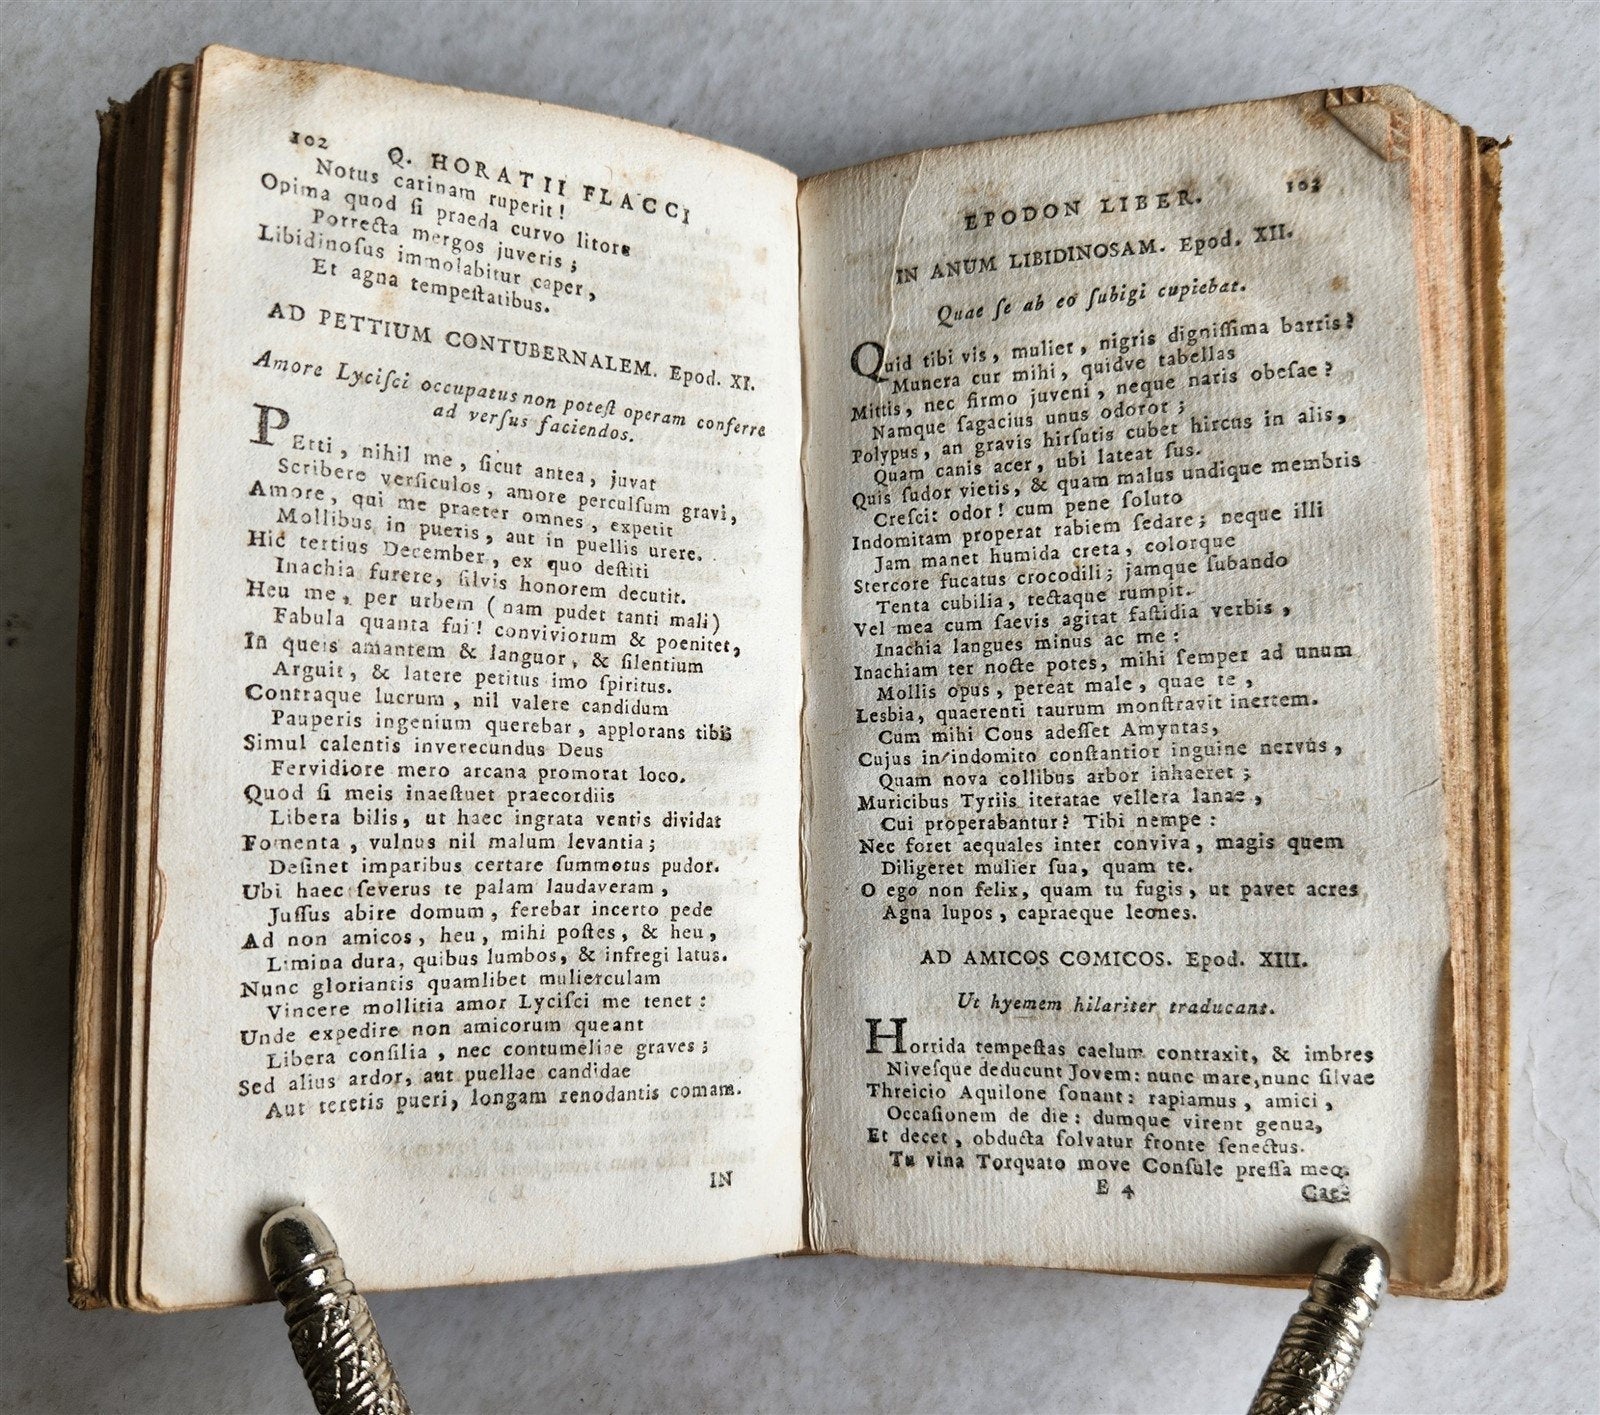 102
Q. HORATII FLACCI
Notus carinam ruperit!
Opima quod ſi praeda curvo litore
Porrecta mergos juveris;
Libidinoſus immolabitur caper,
Et agna tempeſtatibus.
AD PETTIUM CONTUBERNALEM. Epod. XI.
Amore Lyciſci occupatus non poteſt operam conferre
ad verſus faciendos.
PEtti, nihil me, ſicut antea, juvat
Scribere verſiculos, amore perculſum gravi,
Amore, qui me praeter omnes, expetit
Mollibus in pueris, aut in puellis urere.
Hic tertius December, ex quo deſtiti
Inachia furere, ſilvis honorem decutit.
Heu me, per urbem (nam pudet tanti mali)
Fabula quanta fui! conviviorum & poenitet,
In queis amantem & languor, & ſilentium
Arguit, & latere petitus imo ſpiritus.
Contraque lucrum, nil valere candidum
Pauperis ingenium querebar, applorans tibi;
Simul calentis inverecundus Deus
Fervidiore mero arcana promorat loco.
Quod ſi meis inaeſtuet praecordiis
Libera bilis, ut haec ingrata ventis dividat
Fomenta, vulnus nil malum levantia;
Deſinet imparibus certare ſummotus pudor.
Ubi haec ſeverus te palam laudaveram,
Juſſus abire domum, ferebar incerto pede
Ad non amicos, heu, mihi poſtes, & heu,
Limina dura, quibus lumbos, & infregi latus.
Nunc gloriantis quamlibet mulierculam
Vincere mollitia amor Lyciſci me tenet:
Unde expedire non amicorum queant
Libera conſilia, nec contumeliae graves;
Sed alius ardor, aut puellae candidae
Aut teretis pueri, longam renodantis comam.
IN
EPODON LIBER.
103
IN ANUM LIBIDINOSAM. Epod. XII.
Quae ſe ab eo ſubigi cupiebat.
Quid tibi vis, mulier, nigris digniſſima barris?
Munera cur mihi, quidve tabellas
Mittis, nec firmo juveni, neque naris obeſae?
Namque ſagacius unus odoror;
Polypus, an gravis hirſutis cubet hircus in alis,
Quam canis acer, ubi lateat ſus.
Quis ſudor vietis, & quam malus undique membris
Creſcit odor! cum pene ſoluto
Indomitam properat rabiem ſedare; neque illi
Jam manet humida creta, colorque
Stercore fucatus crocodili; jamque ſubando
Tenta cubilia, tectaque rumpit.
Vel mea cum ſaevis agitat faſtidia verbis,
Inachia langues minus ac me:
Inachiam ter nocte potes, mihi ſemper ad unum
Mollis opus, pereat male, quae te,
Lesbia, quaerenti taurum monſtravit inertem.
Cum mihi Cous adeſſet Amyntas,
Cujus in indomito conſtantior inguine nervus,
Quam nova collibus arbor inhaeret;
Muricibus Tyriis iteratae vellera lanae,
Cui properabantur? Tibi nempe:
Nec foret aequales inter conviva, magis quem
Diligeret mulier ſua, quam te.
O ego non felix, quam tu fugis, ut pavet acres
Agna lupos, capraeque leones.
AD AMICOS COMICOS. Epod. XIII.
Ut hyemem hilariter traducant.
Horrida tempeſtas caelum contraxit, & imbres
Niveſque deducunt Jovem: nunc mare, nunc ſilvae
Threicio Aquilone ſonant: rapiamus, amici,
Occaſionem de die: dumque virent genua,
Et decet, obducta ſolvatur fronte ſenectus.
Tu vina Torquato move Conſule preſſa meo.
E 4